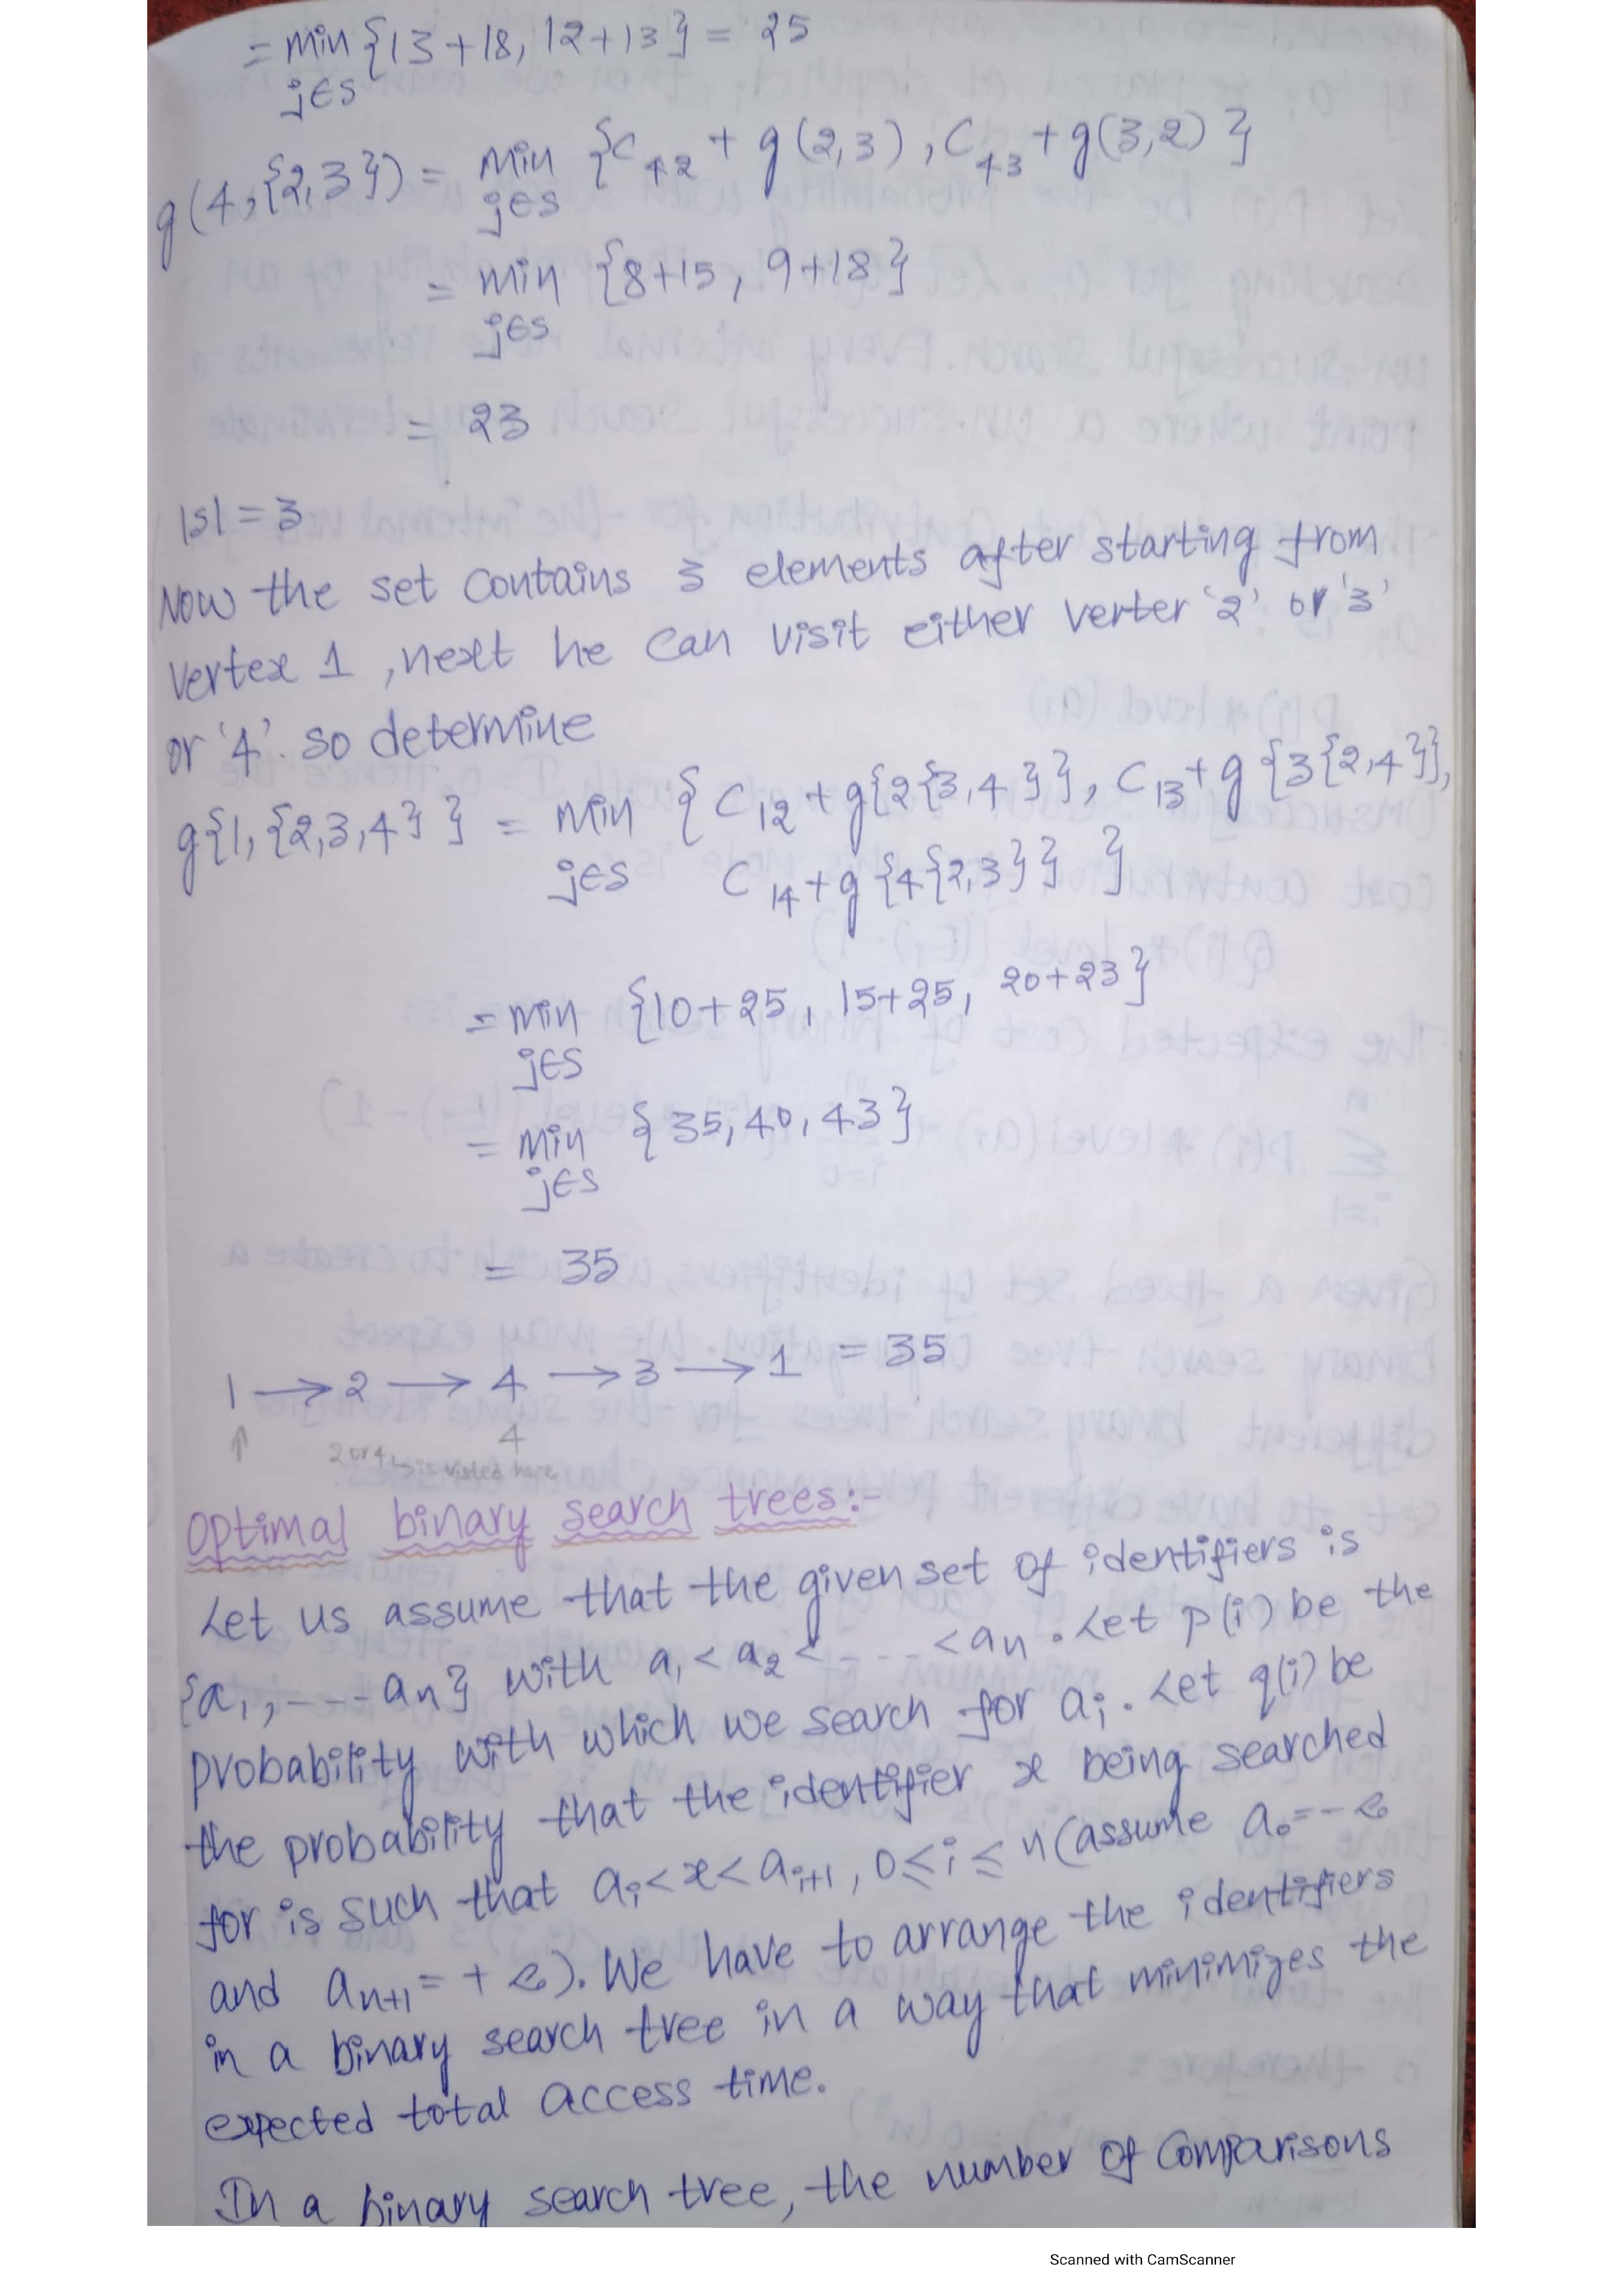 = min {13+18, 12+13} = 25
j∈s
g(4,{2,3}) = min {C42 + g(2,3), C43 + g(3,2)}
j∈s
= min {8+15, 9+18}
j∈s
= 23
|s| = 3
Now the set contains 3 elements after starting from
vertex 1, next he can visit either verter '2' or '3'
or '4'. so determine
g{1,{2,3,4}} = min {C12 + g{2{3,4}}, C13 + g{3{2,4}},
j∈s C14 + g{4{2,3}} }
= min {10+25, 15+25, 20+23}
j∈s
= min {35, 40, 43}
j∈s
= 35
1 → 2 → 4 → 3 → 1 = 35
↑ 4
2 or 4 is visted here
Optimal binary search trees:-
Let us assume that the given set of identifiers is
{a1, ---- an} with a1 < a2 < ---- < an. Let p(i) be the
probability with which we search for ai. Let q(i) be
the probability that the identifier x being searched
for is such that ai < x < ai+1, 0 ≤ i ≤ n (assume a0 = - ∞
and an+1 = + ∞). We have to arrange the identifiers
in a binary search tree in a way that minimizes the
expected total access time.
In a binary search tree, the number of comparisons
Scanned with CamScanner